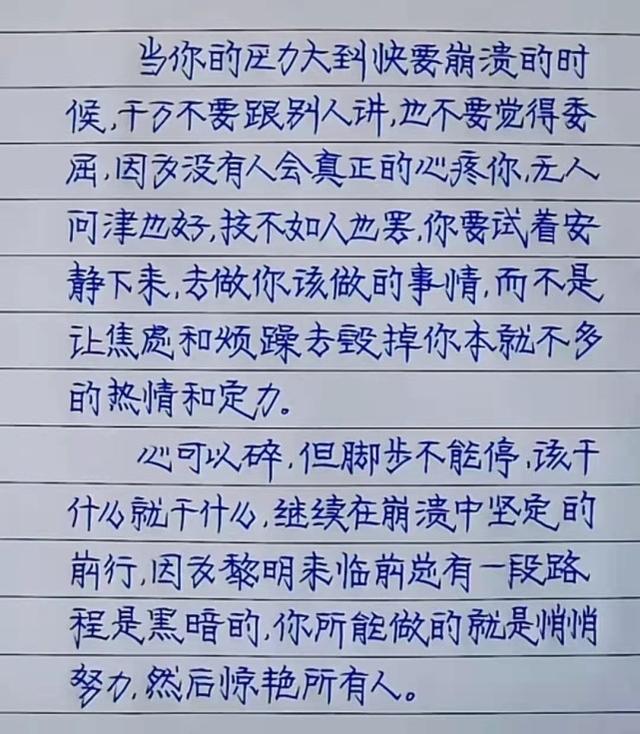 当你的压力大到快要崩溃的时
候,千万不要跟别人讲,也不要觉得委
屈,因为没有人会真正的心疼你,无人
问津也好,技不如人也罢,你要试着安
静下来,去做你该做的事情,而不是
让焦虑和烦躁去毁掉你本就不多
的热情和定力。
心可以碎,但脚步不能停,该干
什么就干什么,继续在崩溃中坚定的
前行,因为黎明来临前总有一段路
程是黑暗的,你所能做的就是悄悄
努力,然后惊艳所有人。